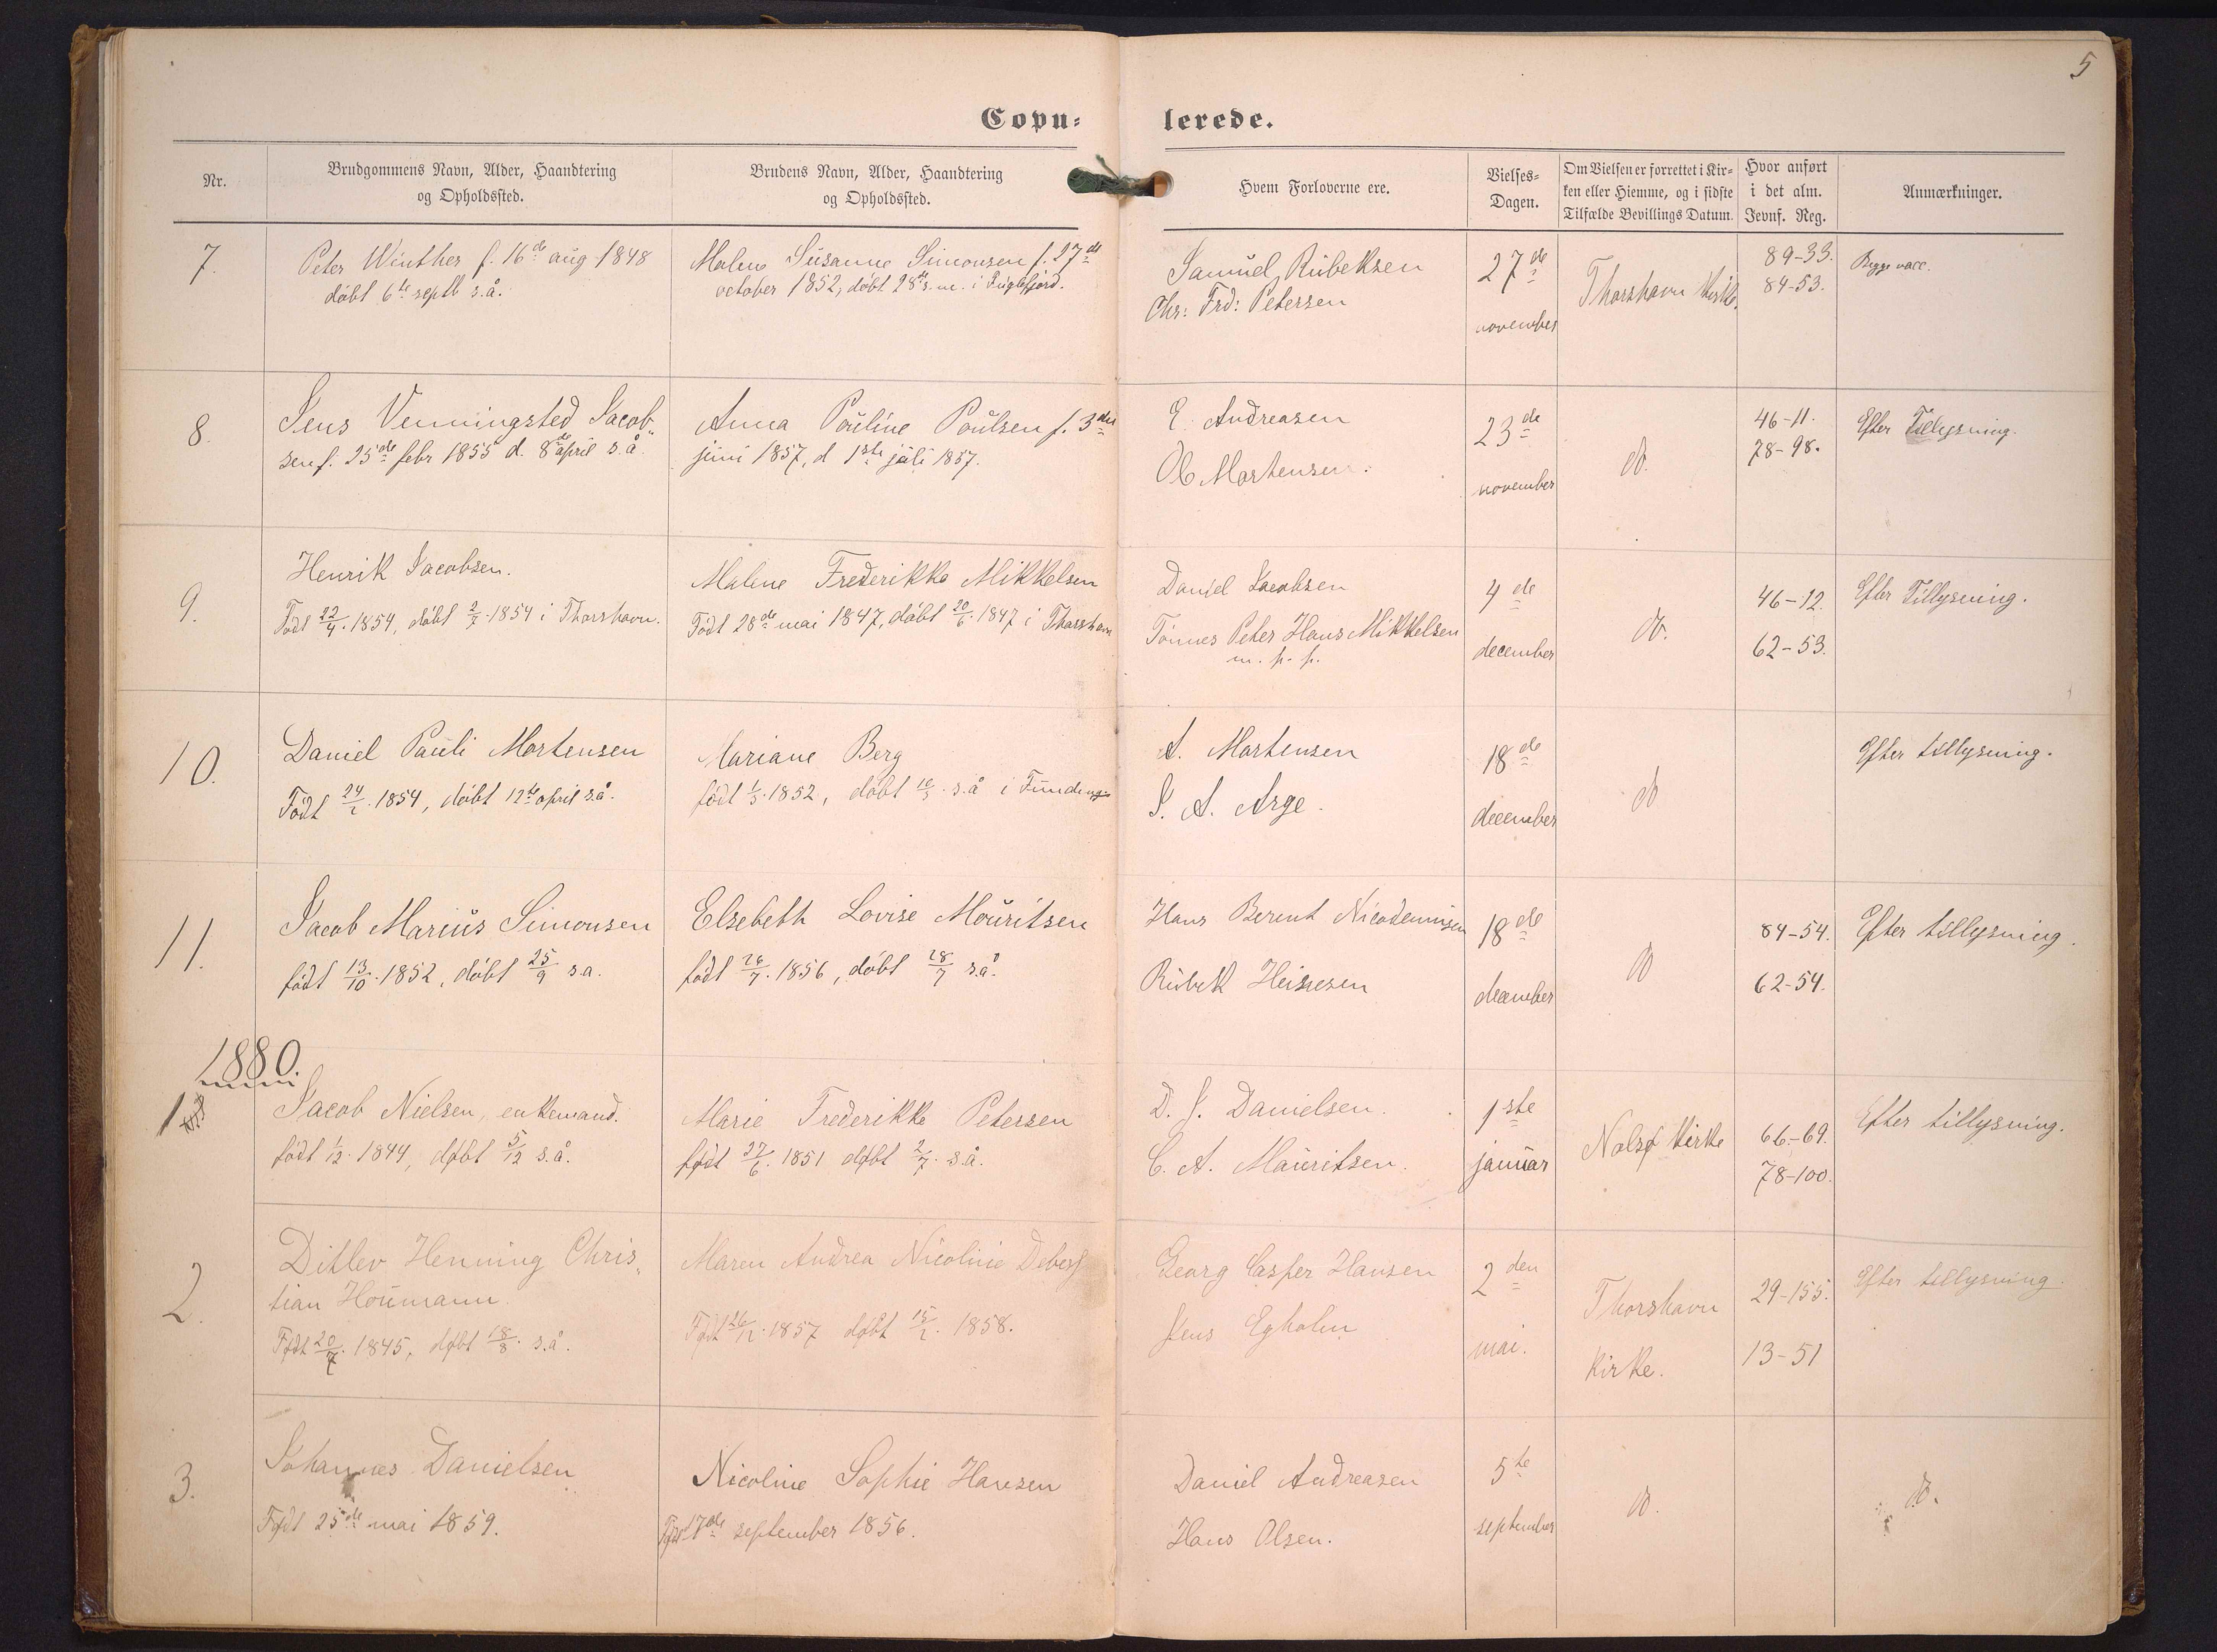 5
Copu=
lerede.
Nr.
Brudgommens Navn, Alder, Haandtering
og Opholdssted.
Brudens Navn, Alder, Haandtering
og Opholdssted.
Hvem Forloverne ere.
Vielses=
Dagen.
Om Vielsen er forrettet i Kir=
ken eller Hiemme, og i sidste
Tilfælde Bevillings Datum.
Hvor anført
i det alm.
Jevnf. Reg.
Anmærkninger.
7.
Peter Winther f. 16de aug 1848
døbt 6te septb s.å.
Malene Susanne Simonsen f. 27de
october 1852, døbt 28de s.m. i Fuglefjord.
Samuel Rubeksen
Chr: Frd: Petersen
27de
november
Thorshavn Kirke.
89-33.
84-53.
Begge vacc.
8.
Jens Venningsted Jacob-
sen f. 25de febr 1855 d. 8de april s.å.
Anna Pouline Poulsen f. 3die
juni 1857, d 1ste juli 1857.
E. Andreasen
Ol. Mortensen.
23de
november
do.
46-11.
78-98.
Efter Tillysning.
9.
Henrik Jacobsen.
Født 22/4. 1854, døbt 2/7. 1854 i Thorshavn.
Malene Frederikke Mikkelsen
Født 28de mai 1847, døbt 20/6. 1847 i Thorshavn
Daniel Jacobsen
Tønnes Peter Hans Mikkelsen
m. p. p.
4de
december
do.
46-12.
62-53.
Efter Tillysning.
10.
Daniel Pauli Mortensen
Født 24/2. 1854, døbt 12te april s.å.
Mariane Berg
født 1/5. 1852, døbt 16/5. s.å i Funding
A. Mortensen
J. A. Arge.
18de
december
do
Efter tillysning.
11.
Jacob Marius Simonsen
født 13/10. 1852, døbt 25/9 s.a.
Elsebeth Lovise Mouritsen
født 26/7. 1856, døbt 28/7 s.å.
Hans Berent Nicodemusen
Rubek Heinesen
18de
december
do
84-54.
62-54.
Efter tillysning.
1880.
1
Jacob Nielsen, enkemand.
født 1/12. 1844, døbt 5/12 s.å.
Marie Frederikke Petersen
født 27/6. 1851 døbt 2/7. s.å.
D. J. Danielsen.
C. A. Mauritsen.
1ste
januar
Nolsø Kirke
66-69.
78-100.
Efter tillysning.
2.
Ditlev Henning Chris-
tian Houmann.
Født 20/7. 1845, døbt 18/8. s.å.
Maren Andrea Nicoline Debes
Født 26/12. 1857 døbt 15/2. 1858.
Georg Casper Hansen
Jens Egholm
2den
mai.
Thorshavn
Kirke.
29-155.
13-51
Efter tillysning.
3.
Johannes Danielsen
Født 25de mai 1859.
Nicoline Sophie Hansen
Født 7de september 1856.
Daniel Andreasen
Hans Olsen.
5te
september
do.
do.